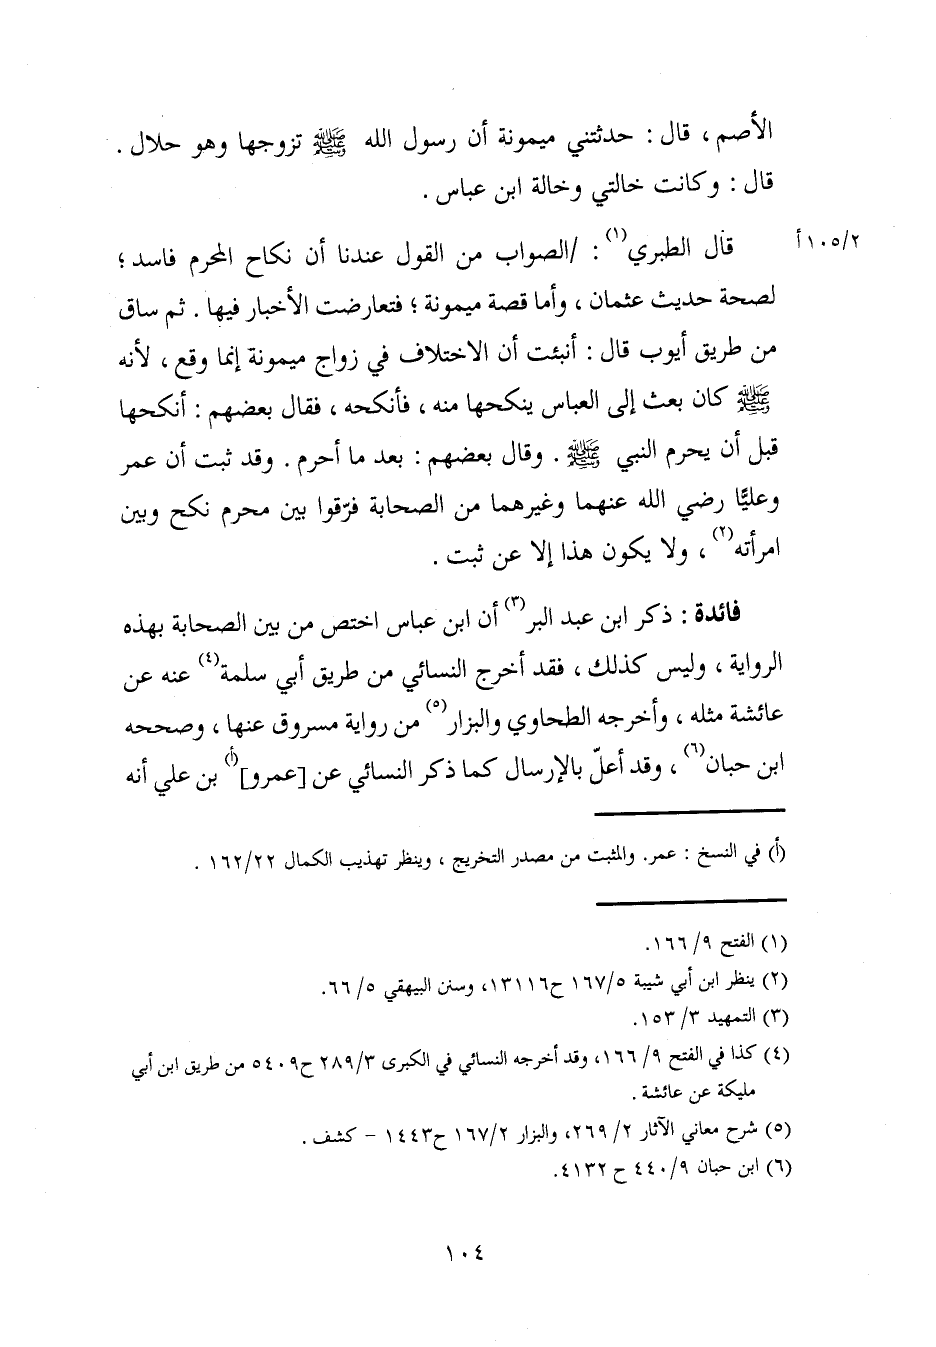 الأصم ، قال : حدثتني ميمونة أن رسول الله ﷺ تزوجها وهو حلال .
قال : وكانت خالتي وخالة ابن عباس .
٢/ ١٠٥أ
قال الطبري(١) : /الصواب من القول عندنا أن نكاح المحرم فاسد ؛
لصحة حديث عثمان ، وأما قصة ميمونة ؛ فتعارضت الأخبار فيها . ثم ساق
من طريق أيوب قال : أنبئت أن الاختلاف في زواج ميمونة إنما وقع ، لأنه
ﷺ كان بعث إلى العباس ينكحها منه ، فأنكحه ، فقال بعضهم : أنكحها
قبل أن يحرم النبي ﷺ . وقال بعضهم : بعد ما أحرم . وقد ثبت أن عمر
وعليًّا رضي الله عنهما وغيرهما من الصحابة فرّقوا بين محرم نكح وبين
امرأته(٢) ، ولا يكون هذا إلا عن ثبت .
فائدة : ذكر ابن عبد البر(٣) أن ابن عباس اختص من بين الصحابة بهذه
الرواية ، وليس كذلك ، فقد أخرج النسائي من طريق أبي سلمة(٤) عنه عن
عائشة مثله ، وأخرجه الطحاوي والبزار(٥) من رواية مسروق عنها ، وصححه
ابن حبان(٦) ، وقد أعلّ بالإرسال كما ذكر النسائي عن [عمرو](أ) بن علي أنه
(أ) في النسخ : عمر. والمثبت من مصدر التخريج ، وينظر تهذيب الكمال ١٦٢/٢٢ .
(١) الفتح ٩/ ١٦٦.
(٢) ينظر ابن أبي شيبة ١٦٧/٥ ح١٣١١٦، وسنن البيهقي ٥/ ٦٦.
(٣) التمهيد ٣/ ١٥٣.
(٤) كذا في الفتح ٩/ ١٦٦، وقد أخرجه النسائي في الكبرى ٢٨٩/٣ ح٥٤٠٩ من طريق ابن أبي
مليكة عن عائشة .
(٥) شرح معاني الآثار ٢/ ٢٦٩، والبزار ١٦٧/٢ ح١٤٤٣ - كشف .
(٦) ابن حبان ٤٤٠/٩ ح ٤١٣٢.
١٠٤